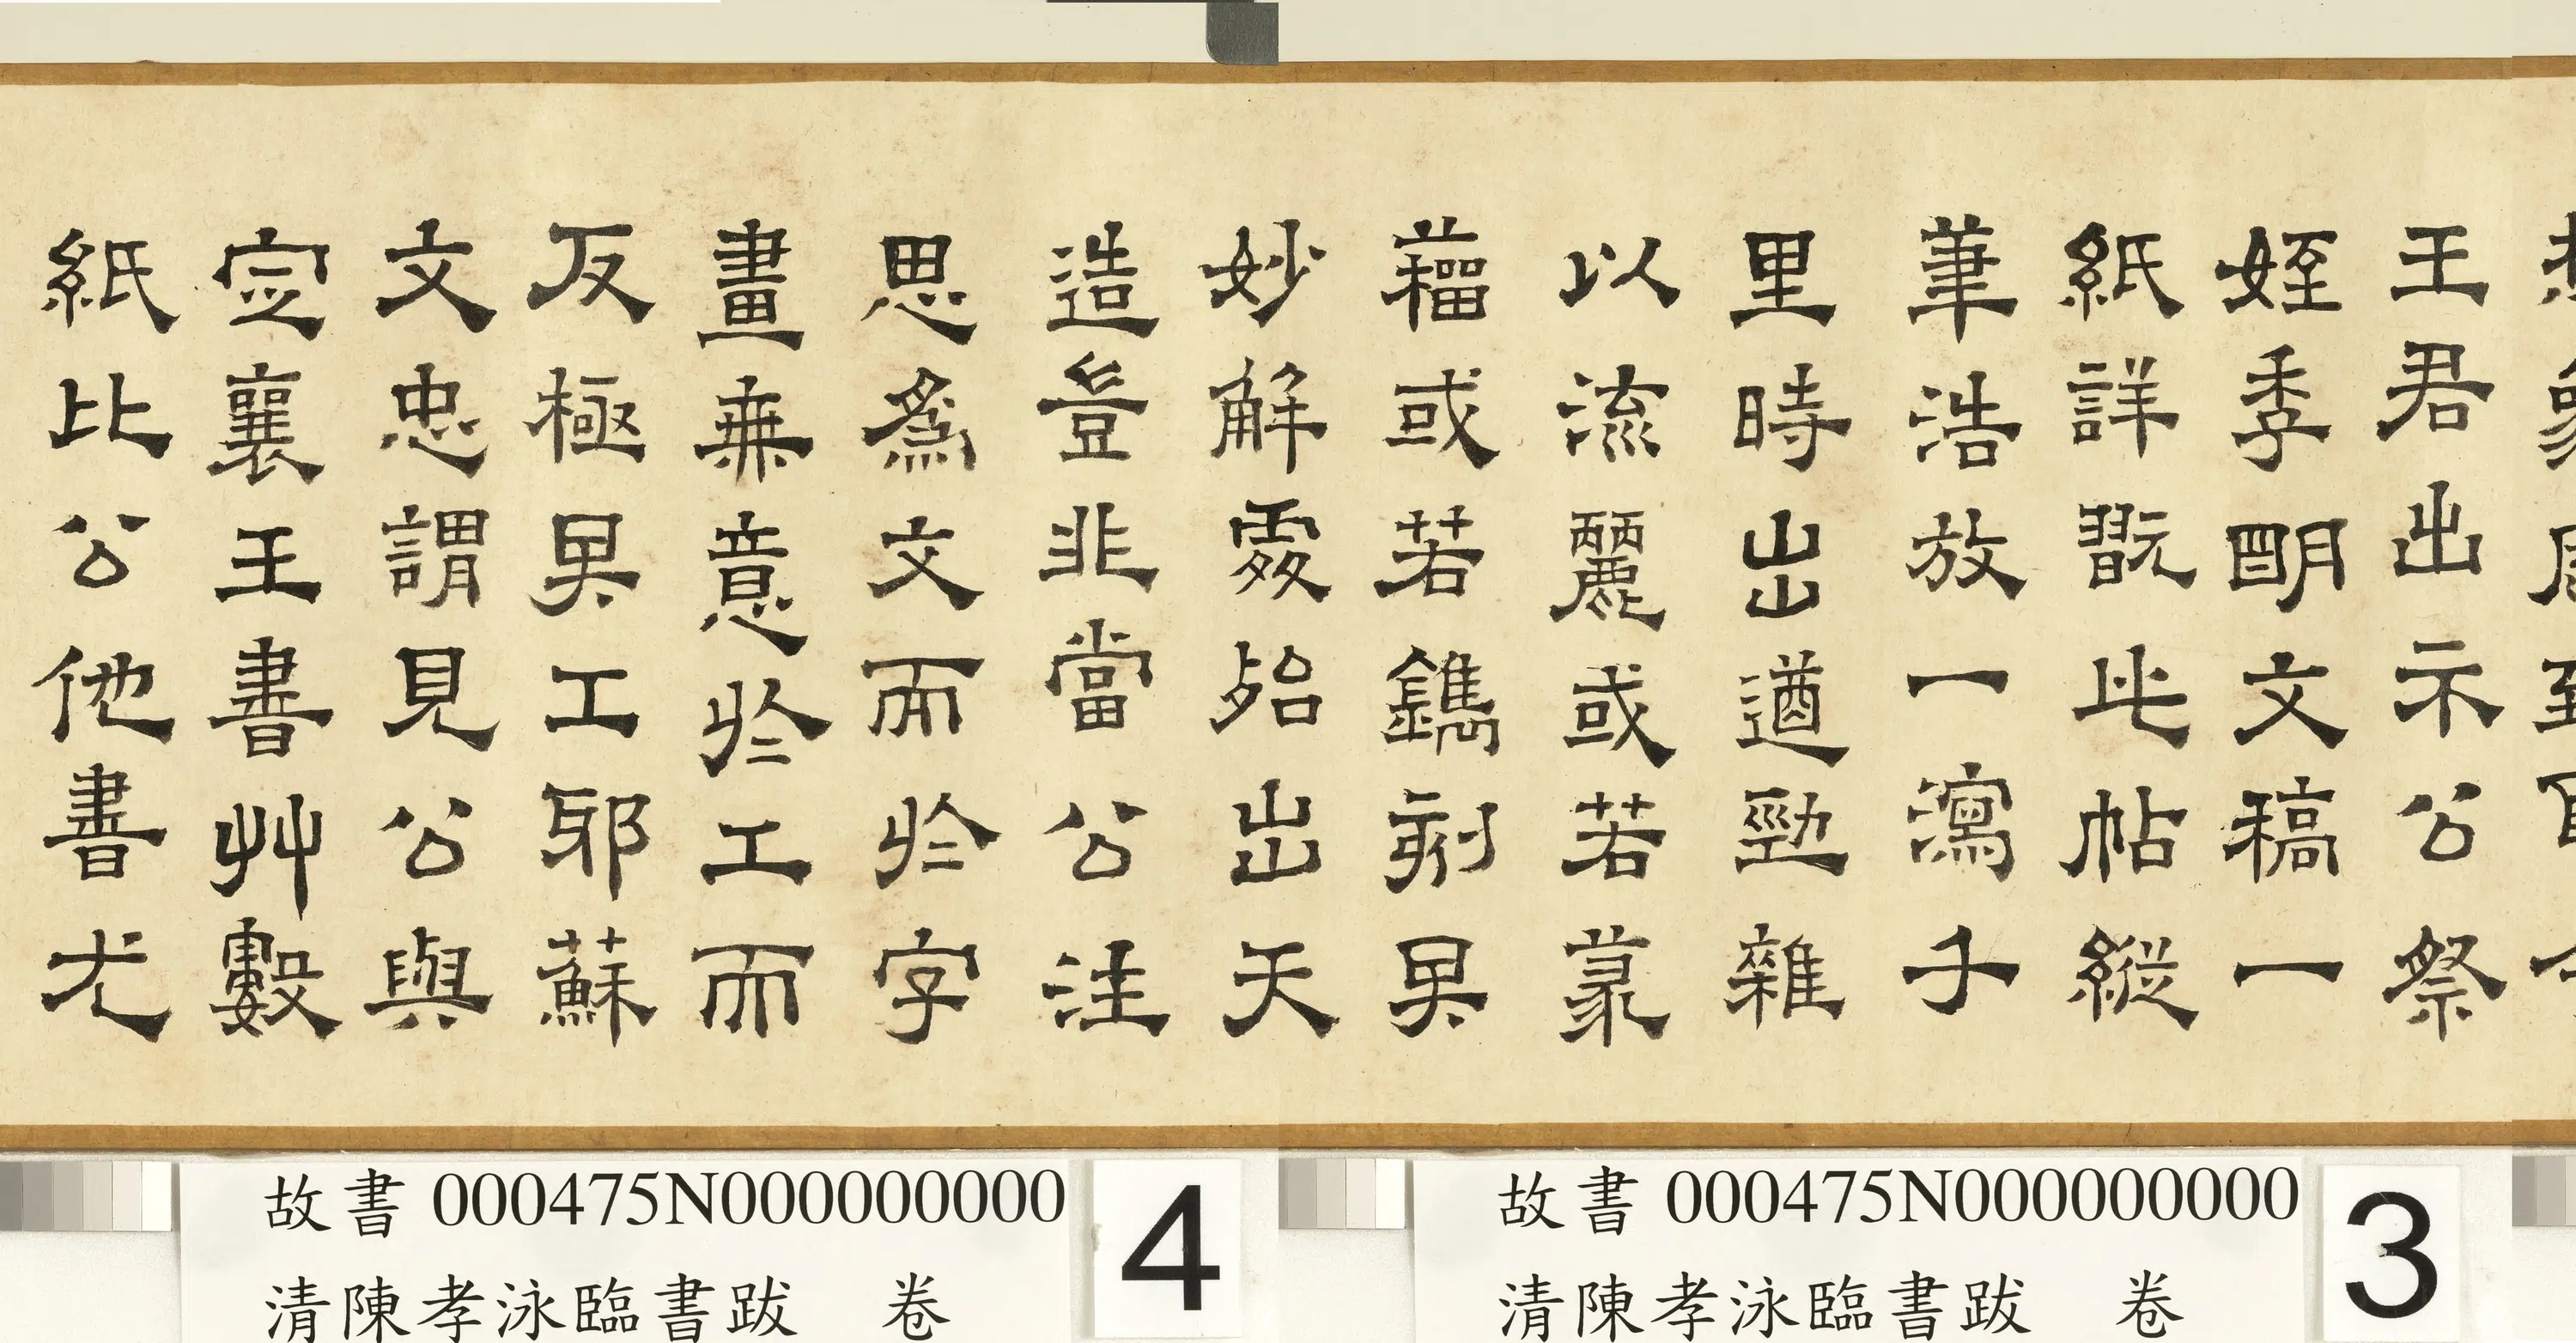 王君出示公祭
姪季明文稿一
紙詳翫此帖縱
筆浩放一瀉千
里時出遒勁雜
以流麗或若篆
籀或若鐫刻其
妙解處殆出天
造豈非當公注
思爲文而於字
畫無意於工而
反極其工耶蘇
文忠謂見公與
定襄王書艸數
紙比公他書尤
故書 000475N000000000 3
清陳孝泳臨書跋 卷
故書 000475N000000000 4
清陳孝泳臨書跋 卷